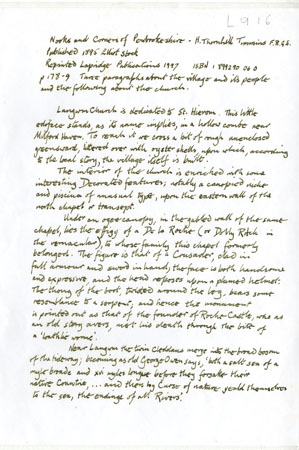 L916
Nooks and Corners of Pembrokeshire - H. Thornhill Timmins F.R.G.S.
Published 1895 Elliot Stock
Reprinted Lapridge Publications 1997 ISBN 1 899290 06 0
p 178-9 Three paragraphs about the village and its people
and the following about the church.
Langwm Church is dedicated to St. Hierom. This little
edifice stands, as its name implies, in a hollow combe near
Milford Haven. To reach it we cross a bit of rough unenclosed
greensward, littered over with oyster shells, upon which, according
to the local story, the village itself is built.
The interior of the church is enriched with some
interesting Decorated features; notably a canopied niche
and piscina of unusual type, upon the eastern wall of the
north chapel or transept.
Under an ogee canopy, in the gabled wall of the same
chapel, lies the effigy of a De la Roche (or Dolly Rotch in
the vernacular), to whose family this chapel formerly
belonged. The figure is that of a Crusader, clad in
full armour and sword in hand; the face is both handsome
and expressive, and the head reposes upon a plumed helmet.
The thong of the boot, twisted around the leg, bears some
resemblance to a serpent, and hence the monument
is pointed out as that of the founder of Roche Castle, who as
an old story avers, met his death through the bite of
a 'loathlie worme'.
Near Langwm the twin Cleddaus merge into the broad bosom
of the haven; becoming as old George Owen says, 'both a salt sea of a
myle broade and xvi myles longe before they forsake their
native Countrie, ... and then by Curse of nature yeald themselves
to the sea, the endinge of all Rivers'.